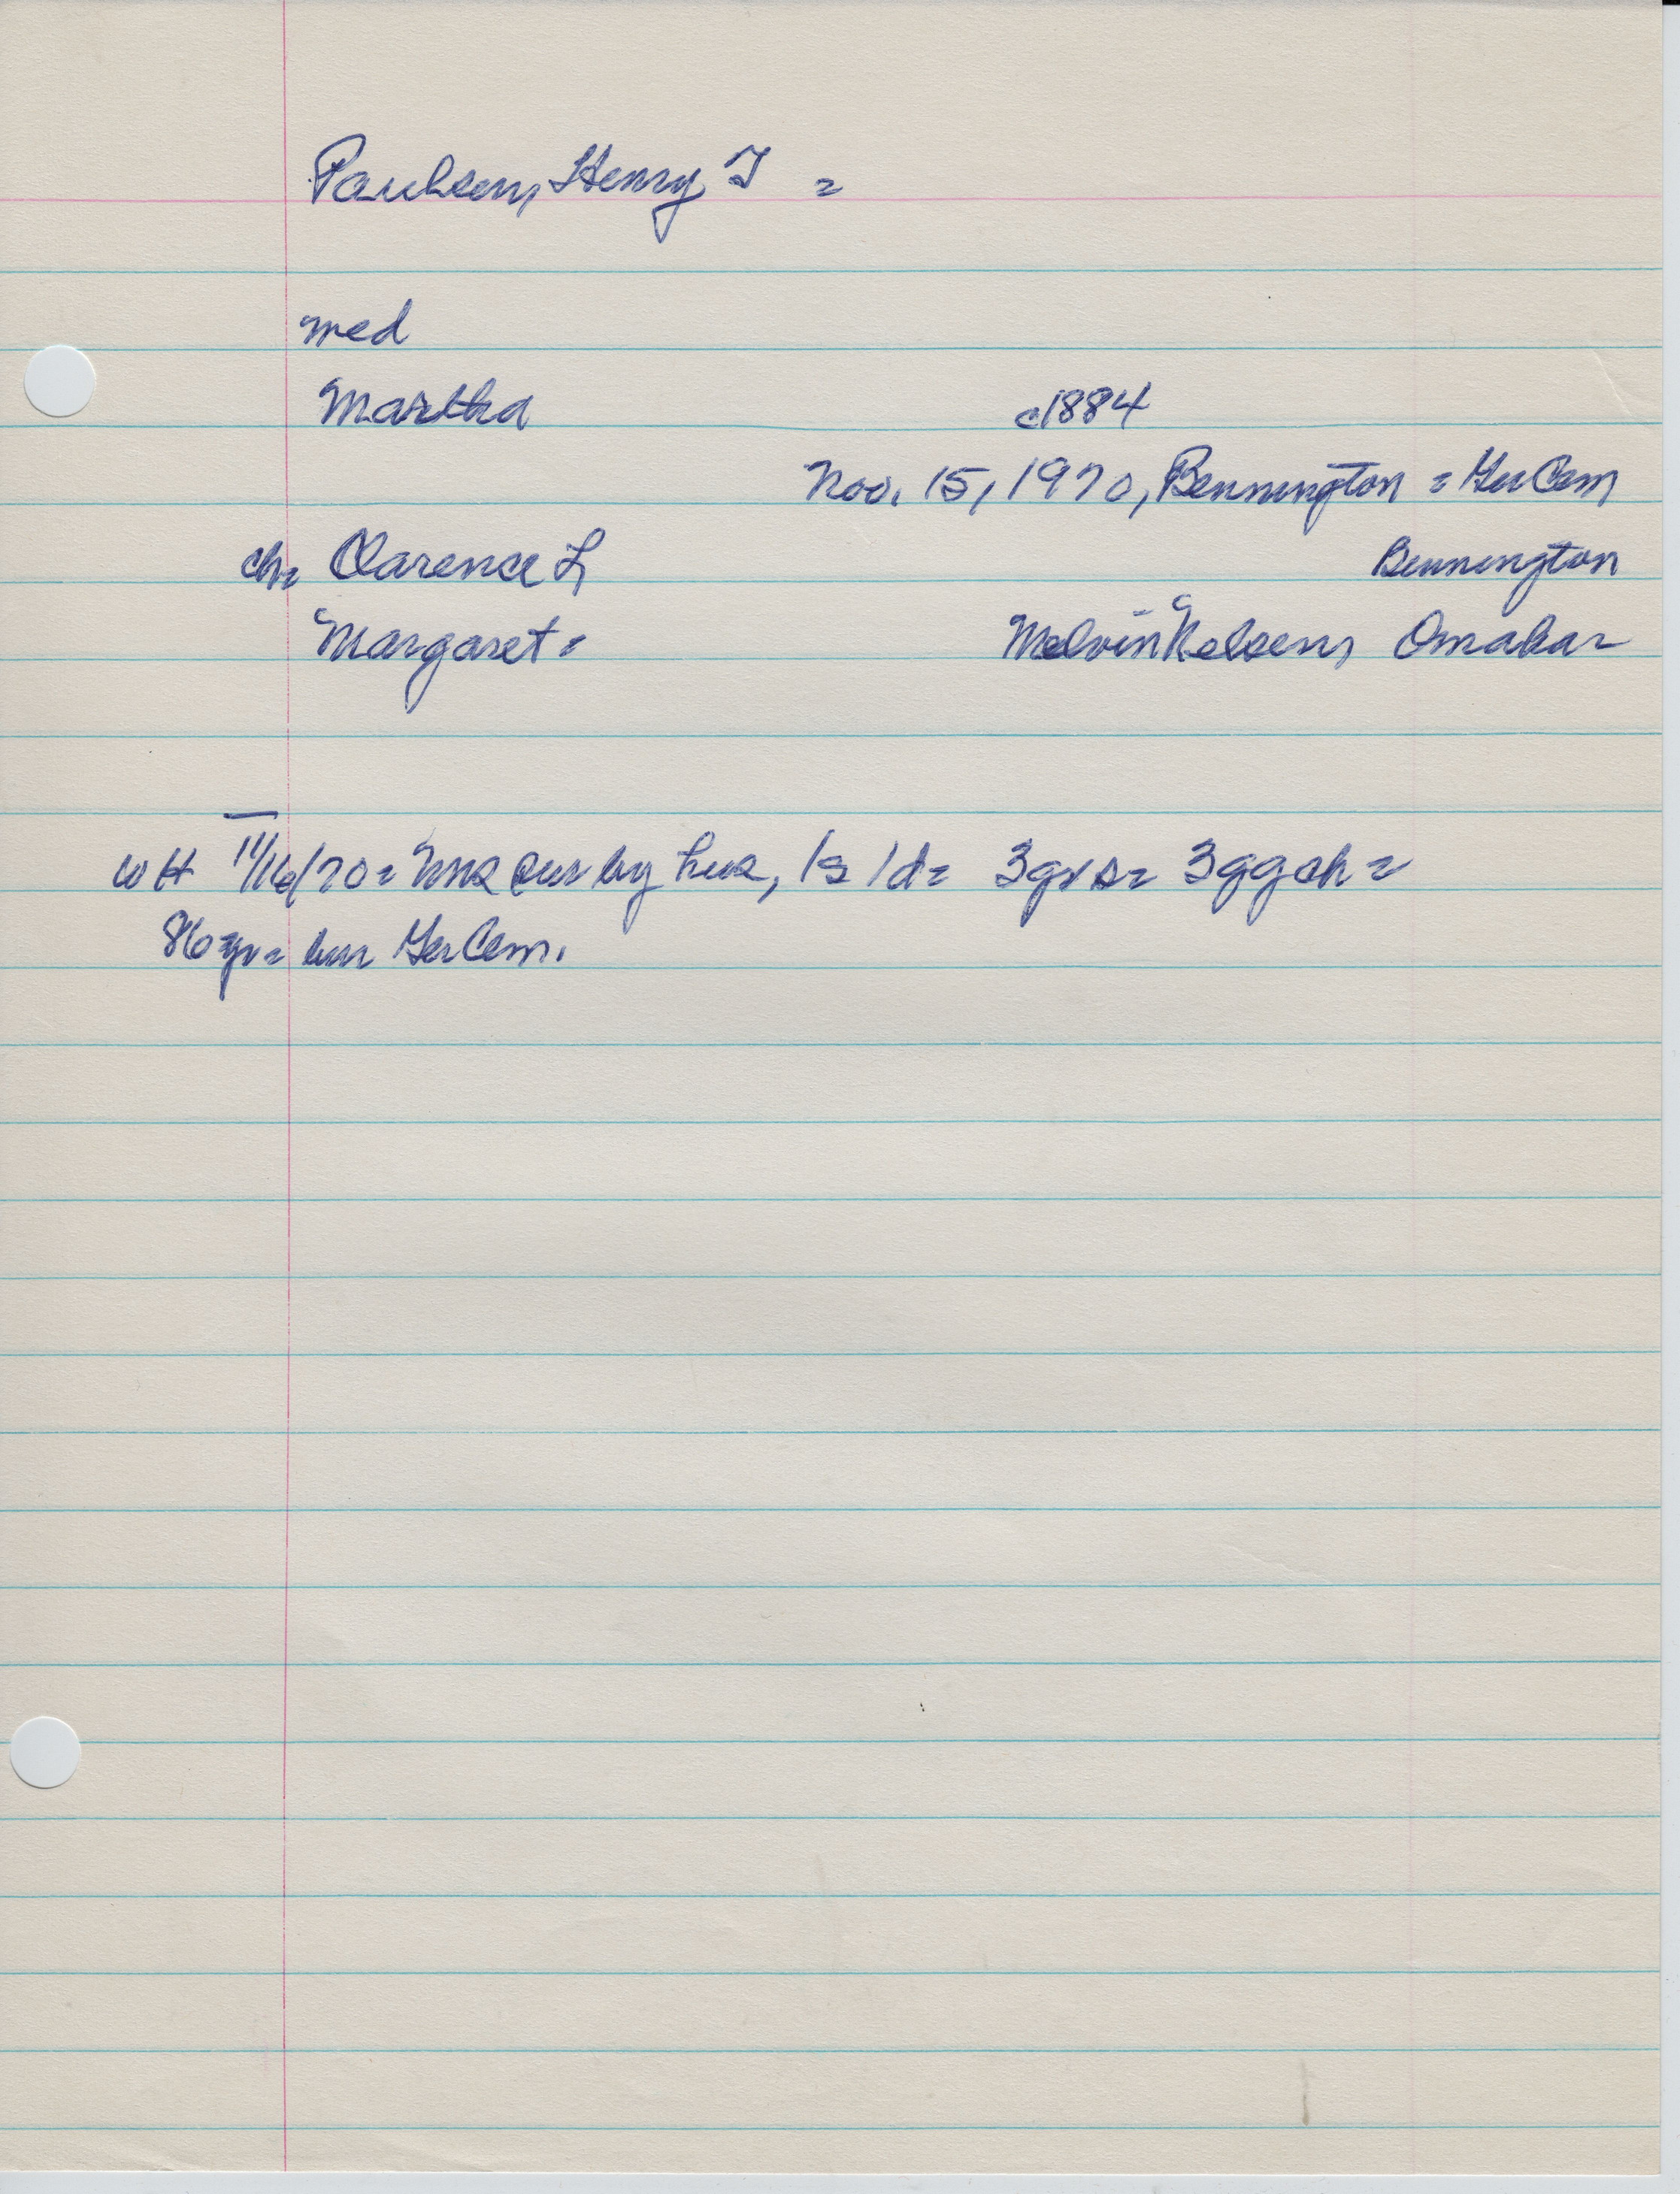 Paulsen, Henry J =
med
Martha c1884
Nov. 15, 1970, Bennington = Ger Cem
ch= Clarence L Bennington
Margaret = Melvin Nelsen, Omaha=
WH 11/16/70 = Mrs sur by hus, 1s 1d= 3grs= 3ggch=
86yr= bur Ger Cem.